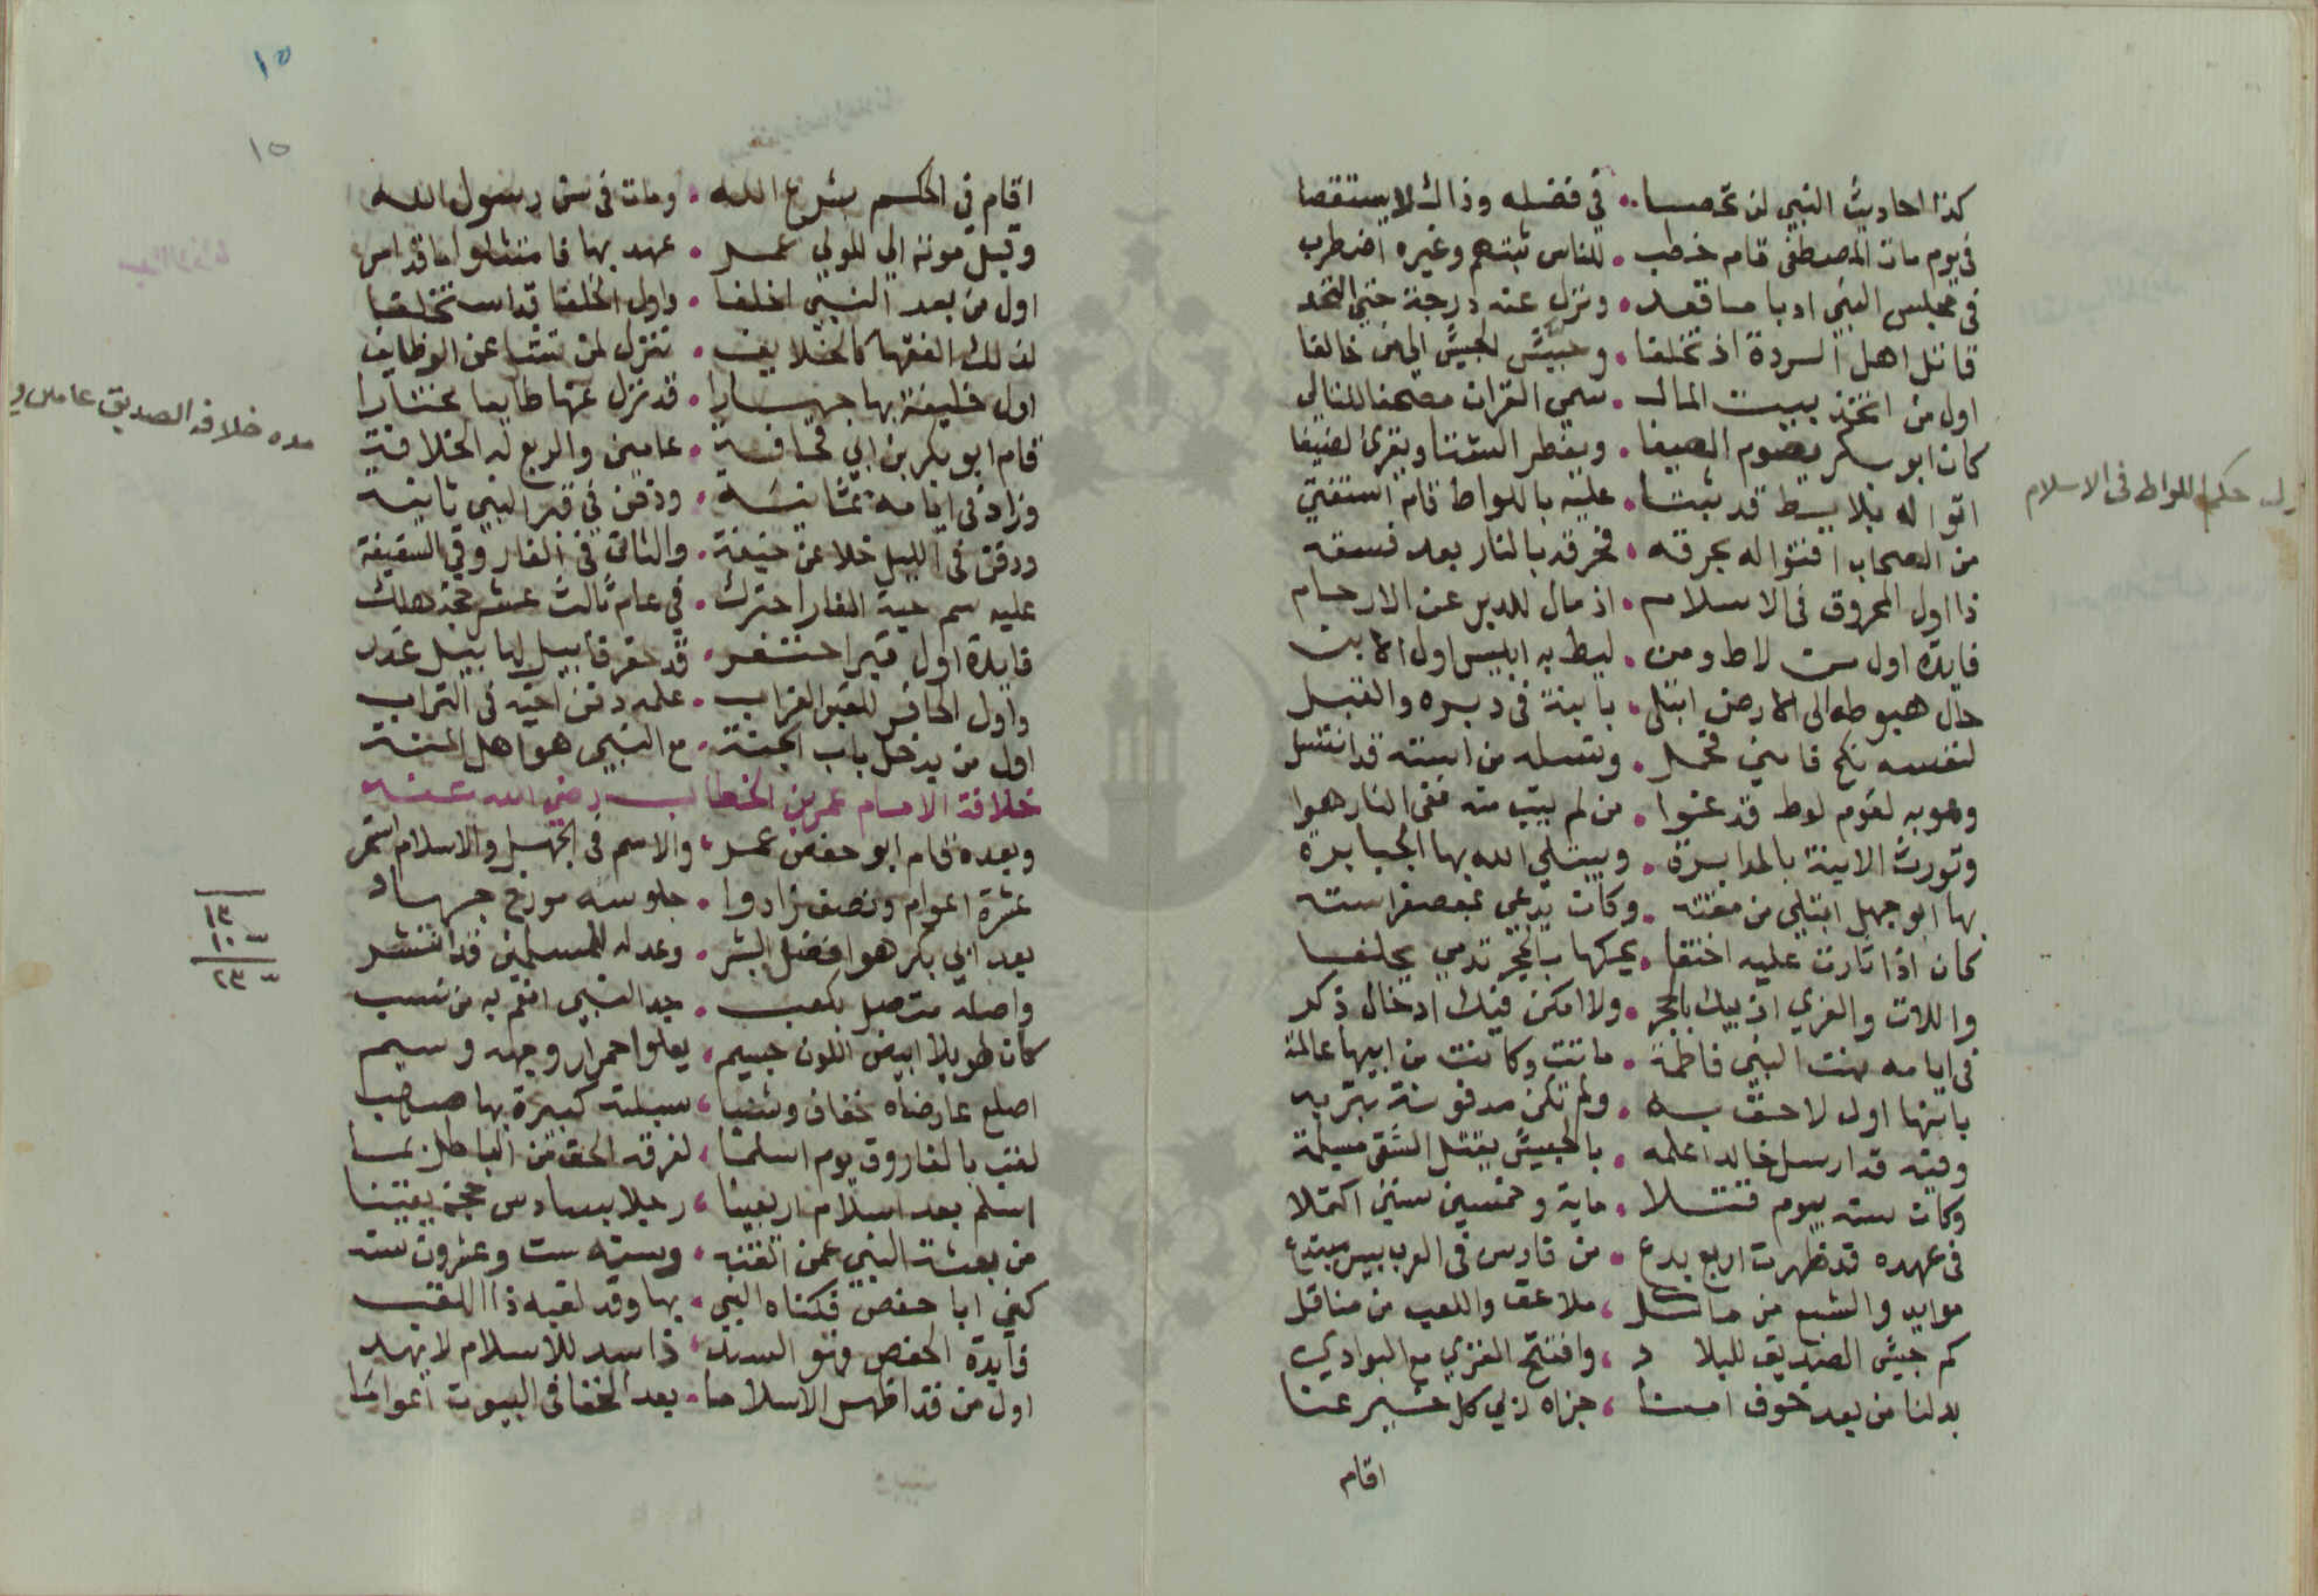 كذا احاديث النبي لن تحصا . في فضله وذاك لا يستقصا
في يوم مات المصطفى قام خطب . للناس ثبتهم وغيره اضطرب
في مجلس النبي ادبا ما قعد . ونزل عنه درجة حتى التحد
قاتل اهل الردة اذ تخلفا . وجيش الجيش الى من خالفا
اول من اتخذ بيت المال . سمى القران مصحفا للتالي
كان ابو بكر يصوم الصيفا . ويفطر الشتا ويقري الضيفا
اتوا له بلايط قد ثبتا . عليه باللواط قام استفتى
من الصحاب افتوا له بحرقه . فحرقه بالنار بعد فسقه
ذا اول المحروق في الاسلام . اذ مال للدبر عن الارحام
فايدة اول من لاط ومن . ليط به ابليس اول الابن
حال هبوطه الى الارض ابتلى . بابنة في دبره والقبل
لنفسه نكح فامنى فحمل . ونسله من ابنته قد انتسل
وهو به لقوم لوط قد غووا . من لم يتب منه ففي النار هووا
وتورث الابنة بالمدابرة . ويبتلي الله بها الجبابرة
بها ابو جهل ابتلي من مقته . وكان يدعى بمصفر استه
كان اذا ثارت عليه اختفا . يحكها بالحجر تدمي يحلفا
واللات والعزي اذبيك بالحجر . ولا امكن فيك ادخال ذكر
في ايامه بنت النبي فاطمة . ماتت وكانت من ابيها عالمة
بانها اول لاحق به . ولم تكن مدفونة بتربه
وفيه قد ارسل خالدا علمه . بالجيش يقتل الشقي مسيلمة
وكان سنه يوم قتلا . ماية وخمسين سنين اكتملا
في عهده قد ظهرت اربع بدع . من فارس في العرب بيس مبتدع
موايد والشبع من ماكل ، ملاعق واللعب من مناقل
كم جيش الصديق للبلاد ، وافتتح الغزي مع البوادي
بدلنا من بعد خوف امنا ، جزاه ربي كل خير عنا
اقام
اول حكم اللواط في الاسلام
١٥
١٥
اقام في الحكم بشرع الله . ومات في سن رسول الله
وقبل موته الى المولى عمر . عهد بها فامتثلوا ما قد امر
اول من بعد النبي اخلفا . واول الخلفا قد استخلفا
لذلك الفقها كالخلايف . تنزل لمن تشا عن الوظايف
اول خليفة بها جهارا . قد نزل عنها طايعا مختارا
قام ابو بكر بن ابي قحافة . عامين والربع له الخلافة
وزاد في ايامه ثمانية . ودفن في قبر النبي ثانيه
ودفن في الليل خلا عن خيفة . والثاني في الغار وفي السقيفة
عليه سم حية الغار احترك . في عام ثالث عشر حجة هلك
فايدة اول قبر احتفر . قد حفر قابيل لهابيل غدر
واول الحافر للقبر الغراب . علمه دفن اخيه في التراب
اول من يدخل باب الجنة . مع النبي هو اهل المنة
خلافة الامام عمر بن الخطاب رضي الله عنه
وبعده قام ابو حفص عمر ، والاسم في الجهل والاسلام استمر
عشرة اعوام ونصف زادوا . جلوسه مورخ جهاد
بعد ابي بكر هو افضل البشر . وعدله للمسلمين قد انتشر
واصله متصل بكعب . جد النبي افقم به من نسب
كان طويلا ابيض اللون جسيم . يعلو احمرار وجهه وسيم
اصلع عارضاه خفاف وشبا ، سبلته كبيرة بها صهب
لقب بالفاروق يوم اسلما ، لفرقه الحق من الباطل بما
اسلم بعد اسلام اربعينا ، رجلا بسادس حجة يقينا
من بعثة النبي عمن اتقنه . وسنه ست وعشرون سنه
كني ابا حفص فكناه النبي . بها وقد لقبه ذا اللقب
فايدة الحفص وهو الاسد ، ذا اسد للاسلام لا يهد
اول من قد اظهر الاسلاما . بعد الخفا في البيوت اعواما
مده خلافه الصديق عامان و
١٣
١٠ ٦
٢٣ ٦